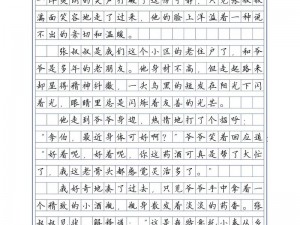 满面笑容地走了过来，他的脸上洋溢着一种说
不出的亲切和温暖。
张叔叔是我们这个小区的老住户了，和爷
爷是多年的老朋友。他身材不高，但是走起路来
却显得精神抖擞，一头乌黑的短发在阳光下闪
着光，眼睛里总是闪烁着友善的光芒。
他走到爷爷身边，热情地打了个招呼：
“李伯，最近身体可好啊？”爷爷笑着回应道
“好着呢，好着呢，你这药酒可真是帮了大忙
了，我这老骨头都感觉灵活多了。”
我好奇地凑了过去，只见爷爷手中拿着一
个精致的小酒瓶，瓶身散发着淡淡的药香。张